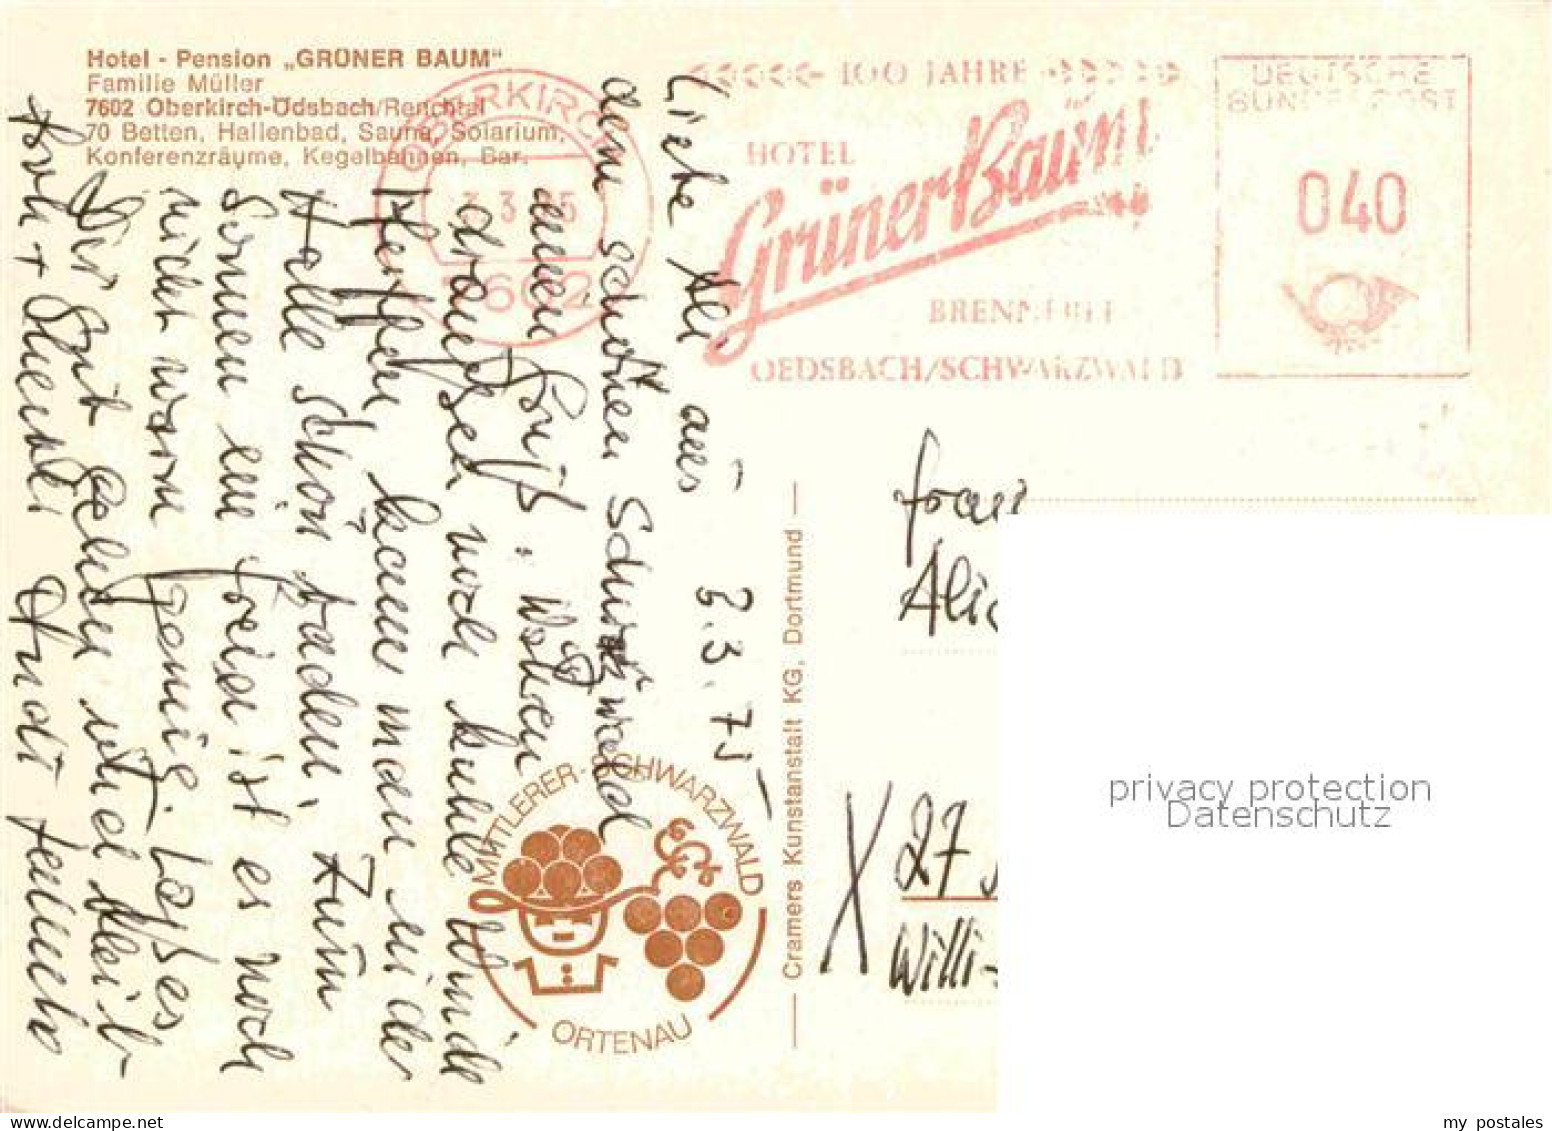 Hotel - Pension „GRÜNER BAUM“
Familie Müller
7602 Oberkirch-Ödsbach/Renchtal
70 Betten, Hallenbad, Sauna, Solarium,
Konferenzräume, Kegelbahnen, Bar.
OBERKIRCH
7602
100 JAHRE
HOTEL
Grüner Baum
BRENNEREI
OEDSBACH/SCHWARZWALD
DEUTSCHE
BUNDESPOST
040
3.3.75
Liebe aus
dem schönen Schwarzwald
einen Gruß. Wehen
draußen noch kühle Winde
kann man in der
Halle schon baden. Zum
Sonnen im Freien ist es noch
nicht warm genug. Laß es
Dir gut gehen und bleib
froh +
MITTLERER-SCHWARZWALD
ORTENAU
Cramers Kunstanstalt KG, Dortmund
Frau
Ali
X 27
Willi-
privacy protection
Datenschutz
my postales